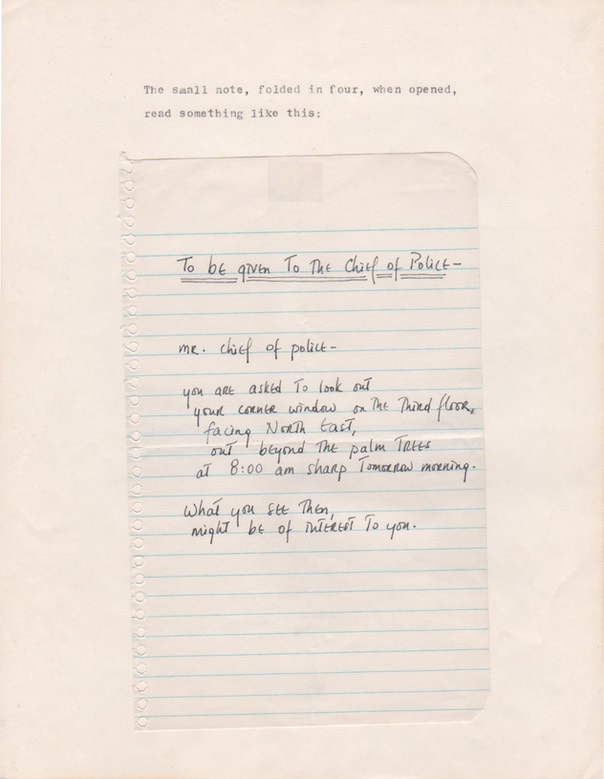 The small note, folded in four, when opened,
read something like this:
To be given To The Chief of Police-
mr. chief of police-
you are asked To look out
your corner window on The Third floor,
facing North East,
out beyond The palm Trees
at 8:00 am sharp Tomorrow morning.
What you see Then,
might be of interest To you.